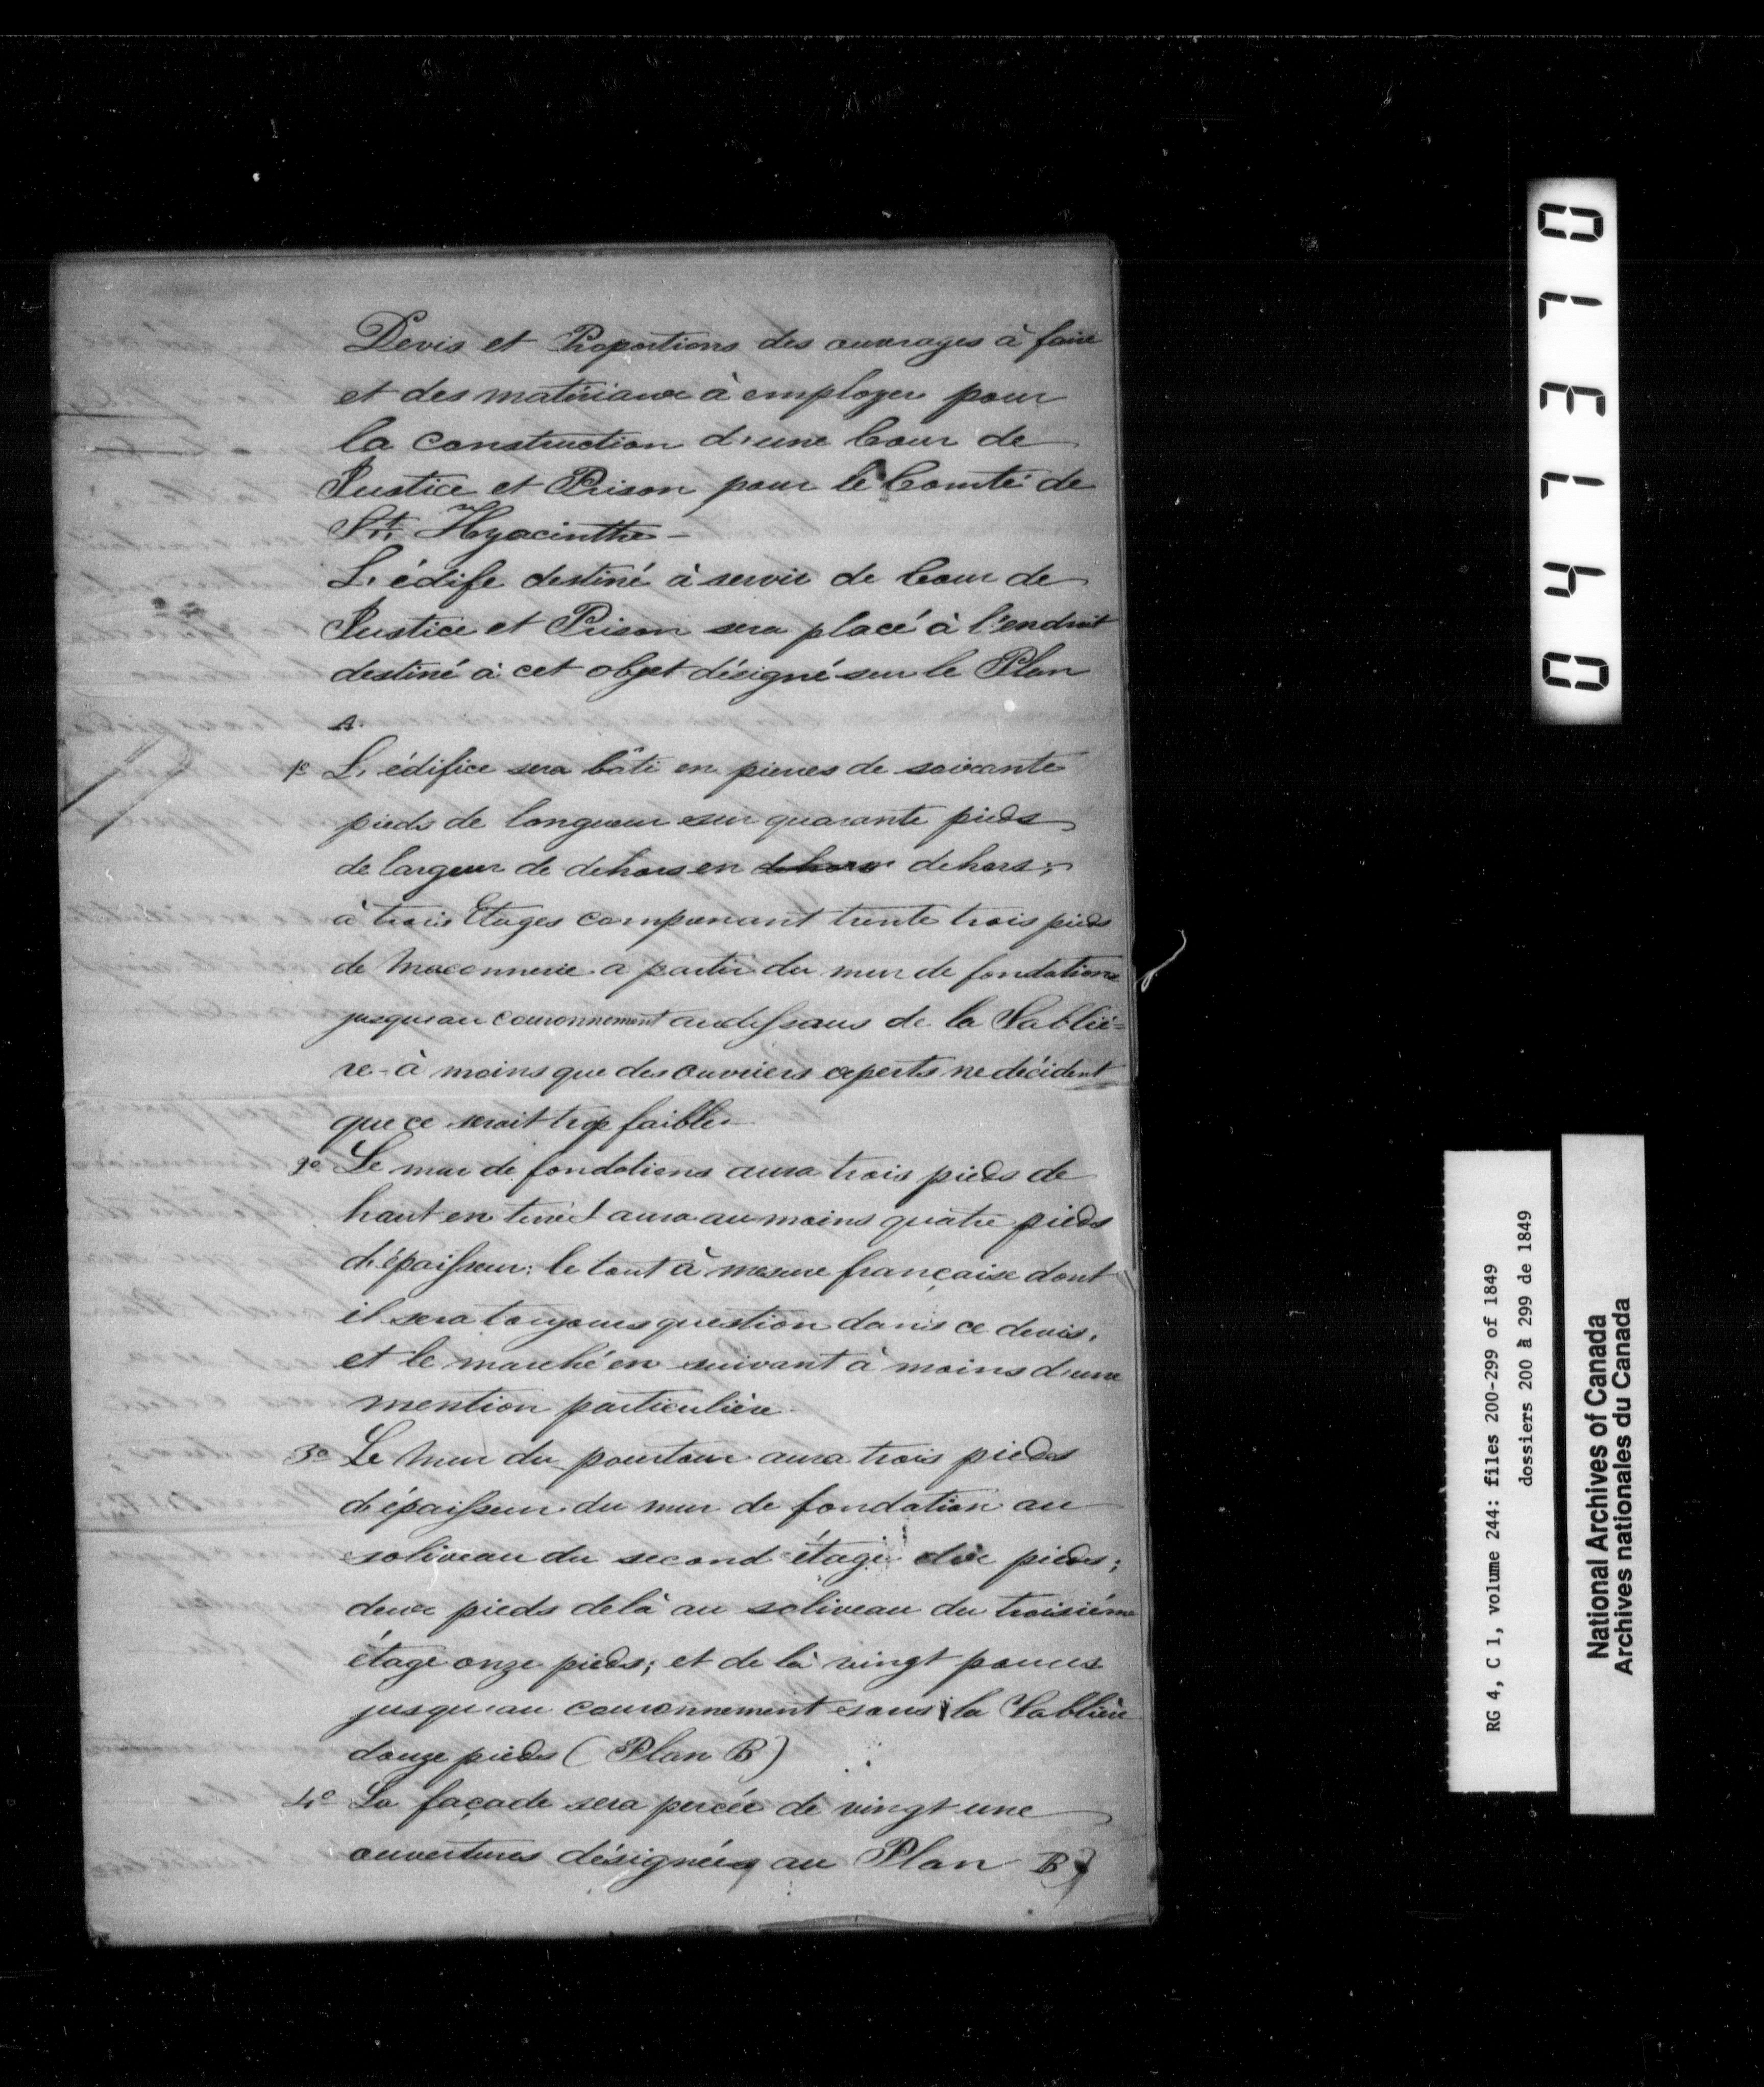 Devis et Proportions des ouvrages à faire
et des matériaux à employer pour
la construction d'une Cour de
Justice et Prison pour le Comté de
St. Hyacinthe -
L'édife destiné à servir de Cour de
Justice et Prison sera placé à l'endroit
destiné à cet objet désigné sur le Plan
A.
1o L'édifice sera bâti en pierres de soixante
pieds de longueur sur quarante pieds
de largeur de dehors en dehors dehors;
à trois Etages comprenant trente trois pieds
de Maconnerie a partir du mur de fondations
jusqu'au couronnement audessous de la Sabliè=
re - à moins que des ouvriers experts ne décident
que ce serait trop faible.
2o Le mur de fondations aura trois pieds de
haut en terre & aura au moins quatre pieds
d'épaisseur: le tout à mesure française dont
il sera toujours question dans ce devis,
et le marché en suivant à moins d'une
mention particulière.
3o Le Mur du pourtour aura trois pieds
d'épaisseur du mur de fondation au
soliveau du second étage dix pieds;
deux pieds delà au soliveau du troisième
étage onze pieds; et de là vingt pouces
jusqu'au couronnement sous la Sablière
douze pieds (Plan B)
4o La façade sera percée de vingt une
ouvertures désignées au Plan B
047370
RG 4, C 1, volume 244: files 200-299 of 1849
dossiers 200 à 299 de 1849
National Archives of Canada
Archives nationales du Canada